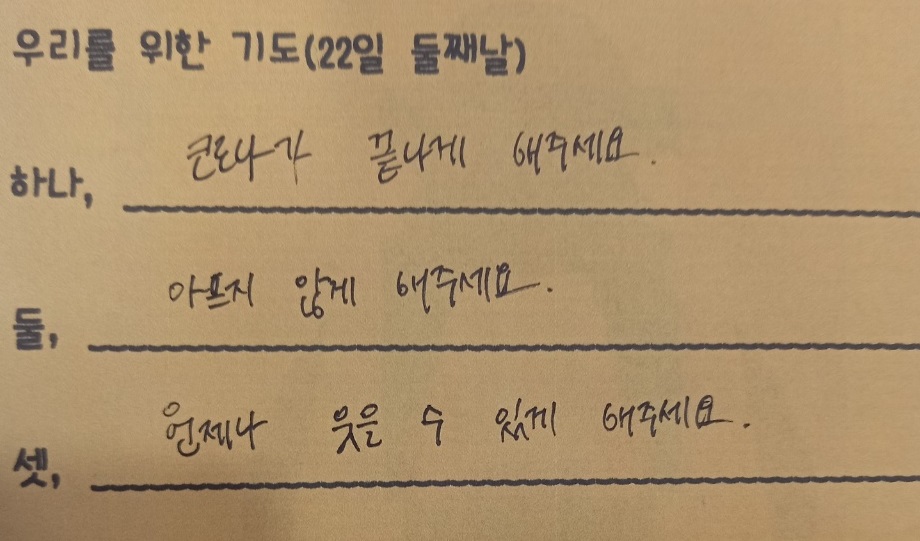 우리를 위한 기도(22일 둘째날)
하나, 코로나가 끝나게 해주세요.
둘, 아프지 않게 해주세요.
셋, 언제나 웃을 수 있게 해주세요.